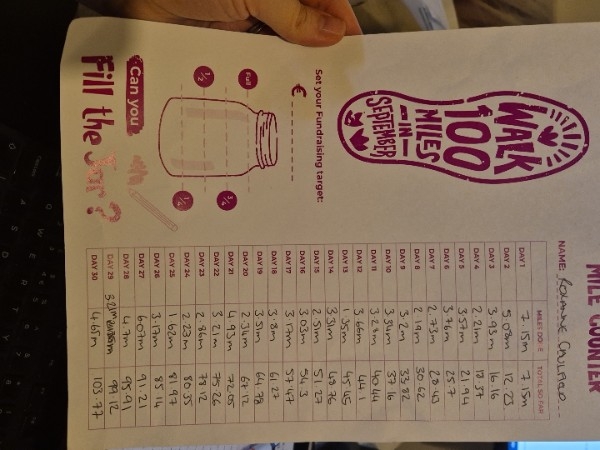 WALK
100
MILES
IN
SEPTEMBER
Set your Fundraising target:
€
Full
3/4
1/2
1/4
Can you
Fill the Jar?
MILE COUNTER
NAME: Roxanne
MILES DONE TOTAL SO FAR
DAY 1 7.15m 7.15m
DAY 2 5.08m 12.23
DAY 3 3.93m 16.16
DAY 4 2.21m 18.37
DAY 5 3.57m 21.94
DAY 6 3.76m 25.7
DAY 7 2.73m 28.43
DAY 8 2.19m 30.62
DAY 9 3.2m 33.82
DAY 10 3.34m 37.16
DAY 11 3.28m 40.44
DAY 12 3.66m 44.1
DAY 13 1.35m 45.45
DAY 14 3.31m 48.76
DAY 15 2.51m 51.27
DAY 16 3.03m 54.3
DAY 17 3.17m 57.47
DAY 18 3.8m 61.27
DAY 19 3.51m 64.78
DAY 20 2.34m 67.12
DAY 21 4.93m 72.05
DAY 22 3.21m 75.26
DAY 23 2.86m 78.12
DAY 24 2.23m 80.35
DAY 25 1.62m 81.97
DAY 26 3.17m 85.14
DAY 27 6.07m 91.21
DAY 28 4.7m 95.91
DAY 29 3.21m 99.12
DAY 30 4.65m 103.77